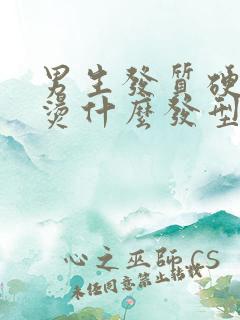 男生發質硬
燙什麼發型
心之巫師 CS
未經同意禁止轉載